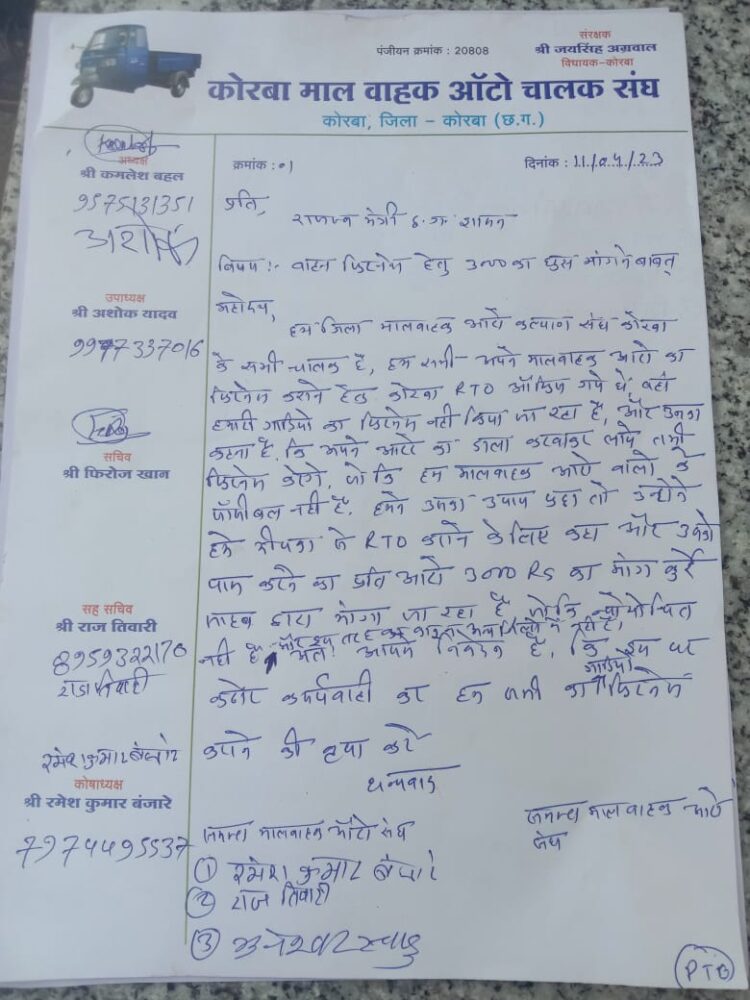 पंजीयन क्रमांक : 20808
संरक्षक
श्री जयसिंह अग्रवाल
विधायक-कोरबा
कोरबा माल वाहक ऑटो चालक संघ
कोरबा, जिला - कोरबा (छ.ग.)
अध्यक्ष
श्री कमलेश बहल
9575131351
अशोक
उपाध्यक्ष
श्री अशोक यादव
9977337016
सचिव
श्री फिरोज खान
सह सचिव
श्री राज तिवारी
8959322170
राज तिवारी
रमेश कुमार बंजारे
कोषाध्यक्ष
श्री रमेश कुमार बंजारे
7974495537
क्रमांक : 01
दिनांक : 11/04/23
प्रति,
राजस्व मंत्री छ.ग. शासन
विषय :- वाहन फिटनेस हेतु 3000 का घुस मांगने बाबत्
महोदय,
हम जिला मालवाहक आटो कल्याण संघ कोरबा
के सभी चालक है, हम सभी अपने मालवाहक आटो का
फिटनेस कराने हेतु कोरबा RTO ऑफिस गये थे, वहां
हमारी गाडियो का फिटनेस नही किया जा रहा है, और उनका
कहना है, कि अपने आटो का डाला कटवाकर लाये तभी
फिटनेस करेंगे, जो कि हम मालवाहक आटो वालो के
पॉसीबल नही है, हमने उनका उपाय पुछा तो उन्होने
हमे RTO कराने के लिए कहा और उनको
पास करने का प्रति आटो 3000 RS का मांग कुर्रे
साहब द्वारा मांगा जा रहा है जोकि न्यायोचित
नही है, और इस तरह का अन्य जिलो मे नही है,
अतः आपसे निवेदन है, कि इस पर
कठोर कार्यवाही कर हम सभी का गाडियो फिटनेस
कराने की कृपा करे
धन्यवाद
समस्त मालवाहक ऑटो संघ
समस्त मालवाहक आटो
संघ
① रमेश कुमार बंजारे
② राज तिवारी
③
PTO